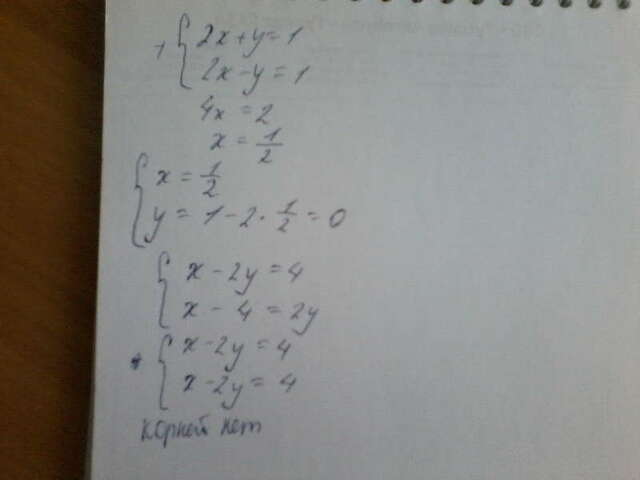 + { 2x + y = 1
2x - y = 1
4x = 2
x = 1/2
{ x = 1/2
y = 1 - 2 · 1/2 = 0
{ x - 2y = 4
x - 4 = 2y
{ x - 2y = 4
x - 2y = 4
корней нет